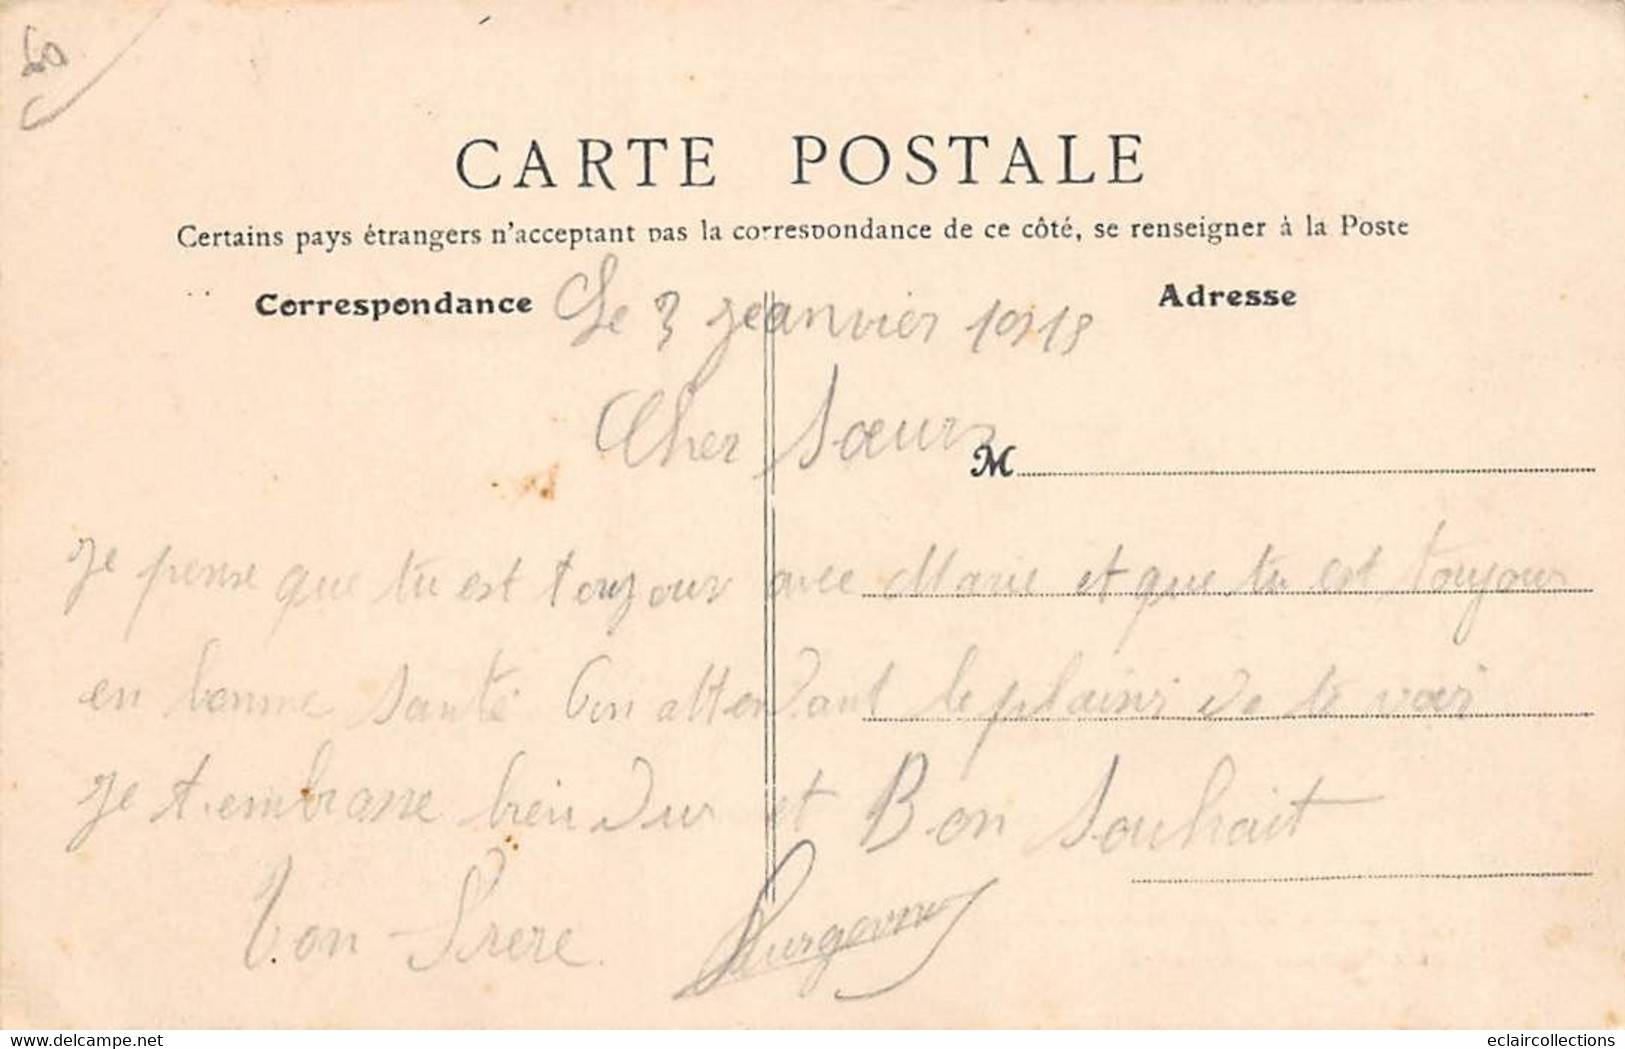 60
CARTE POSTALE
Certains pays étrangers n'acceptant pas la correspondance de ce côté, se renseigner à la Poste
Correspondance
Adresse
Le 3 jeanvier 1918
Cher Sœur
M
je pense que tu est toujour avec Marie et que tu est toujour
en bonne santé En attendant le plaisir de te voir
je t'embrasse bien dur et Bon Souhait
Ton Frere
delcampe.net
eclaircollections